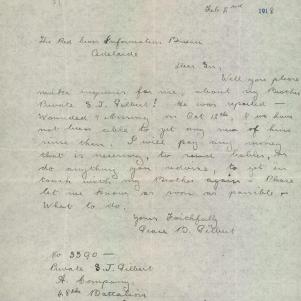 Feb 2nd 1918
The Red Cross Information Bureau
Adelaide
Dear Sir,
Will you please
make inquiries for me, about my Brother
Private S. J. Gilbert! He was reported –
Wounded & Missing on Oct 12th, & we have
not been able to get any news of him
since then. I will pay any money
that is necessary, to send cables, or
do anything you advise, to get in
touch with my Brother again. Please
let me know as soon as possible
What to do.
Yours Faithfully
Grace D. Gilbert
No 3390 –
Private S. J. Gilbert
A. Company
48th Battalion